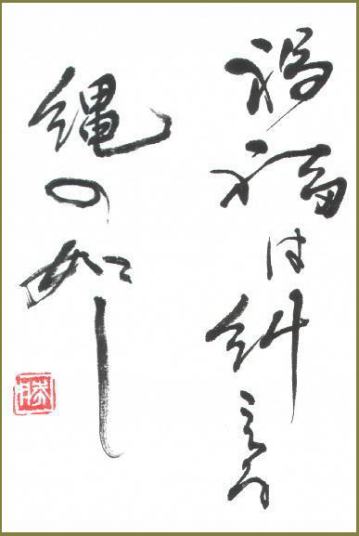 禍福は糾える
縄の如し